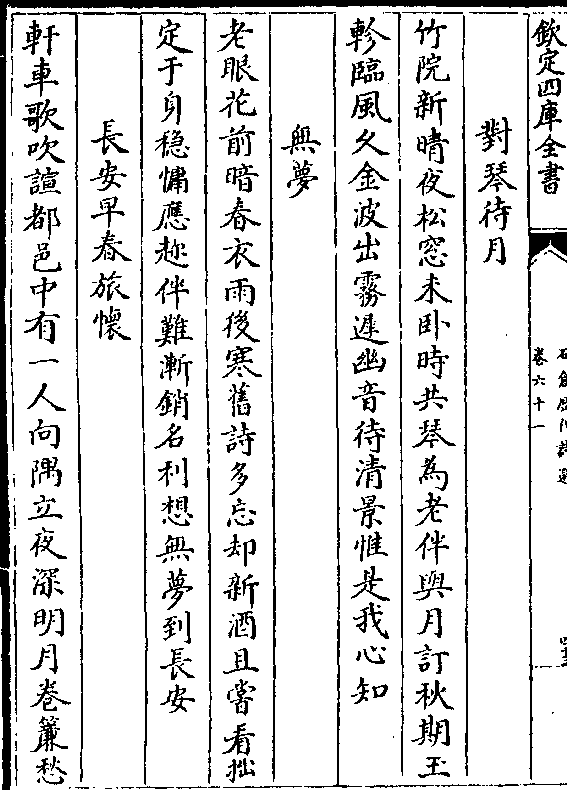 欽定四庫全書
卷六十一
對琴待月
竹院新晴夜松窓未卧時共琴為老伴與月訂秋期玉
軫臨風久金波出霧遲幽音待清景惟是我心知
無夢
老眼花前暗春衣雨後寒舊詩多忘却新酒且嘗看拙
定于身穏慵應趂伴難漸銷名利想無夢到長安
長安早春旅懷
軒車歌吹諠都邑中有一人向隅立夜深明月卷簾愁